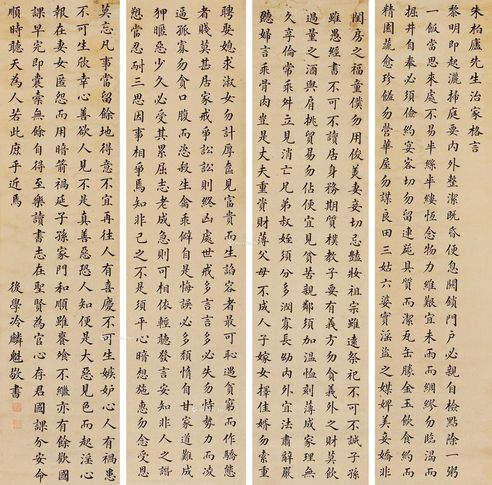 朱柏廬先生治家格言
黎明即起灑掃庭要內外整潔既昏便息關鎖門戶必親自檢點除一粥
一飯當思來處不易半絲半縷恆念物力維艱宜未雨而綢繆勿臨渴而
掘井自奉必須儉約宴客切勿留連苑具質而潔瓦缶勝金玉飲食約而
精園蔬愈珍饈勿營華屋勿謀良田三姑六婆實淫盜之媒婢美妾嬌非
閨房之福童僕勿用俊美妻妾切忌豔妝祖宗雖遠祭祀不可不誠子孫
雖愚經書不可不讀居身務期質樸教子要有義方勿貪意外之財勿飲
過量之酒與肩挑貿易勿佔便宜見貧苦親鄰須加溫恤刻薄成家理無
久享倫常乖舛立見消亡兄弟叔姪須分多潤寡長幼內外宜法肅辭嚴
聽婦言乖骨肉豈是丈夫重資財薄父母不成人子嫁女擇佳婿勿索重
聘娶媳求淑女勿計厚奩見富貴而生諂容者最可恥遇貧窮而作驕態
者賤莫甚居家戒爭訟訟則終凶處世戒多言言多必失勿恃勢力而凌
逼孤寡勿貪口腹而恣殺生禽乖僻自是悔誤必多頹惰自甘家道難成
狎暱惡少久必受其累屈志老成急則可相依輕聽發言安知非人之譖
愬當忍耐三思因事相爭焉知非己之不是須平心暗想施惠勿念受恩
莫忘凡事當留餘地得意不宜再往人有喜慶不可生嫉妒心人有禍患
不可生欣幸心善欲人見不是真善惡恐人知便是大惡見色而起淫心
報在妻女匿怨而用暗箭禍延子孫家門和順雖饔飧不繼亦有餘歡國
課早完即囊橐無餘自得至樂讀書志在聖賢為官心存君國課分安命
順時聽天為人若此庶乎近焉
後學冷麟魁敬書